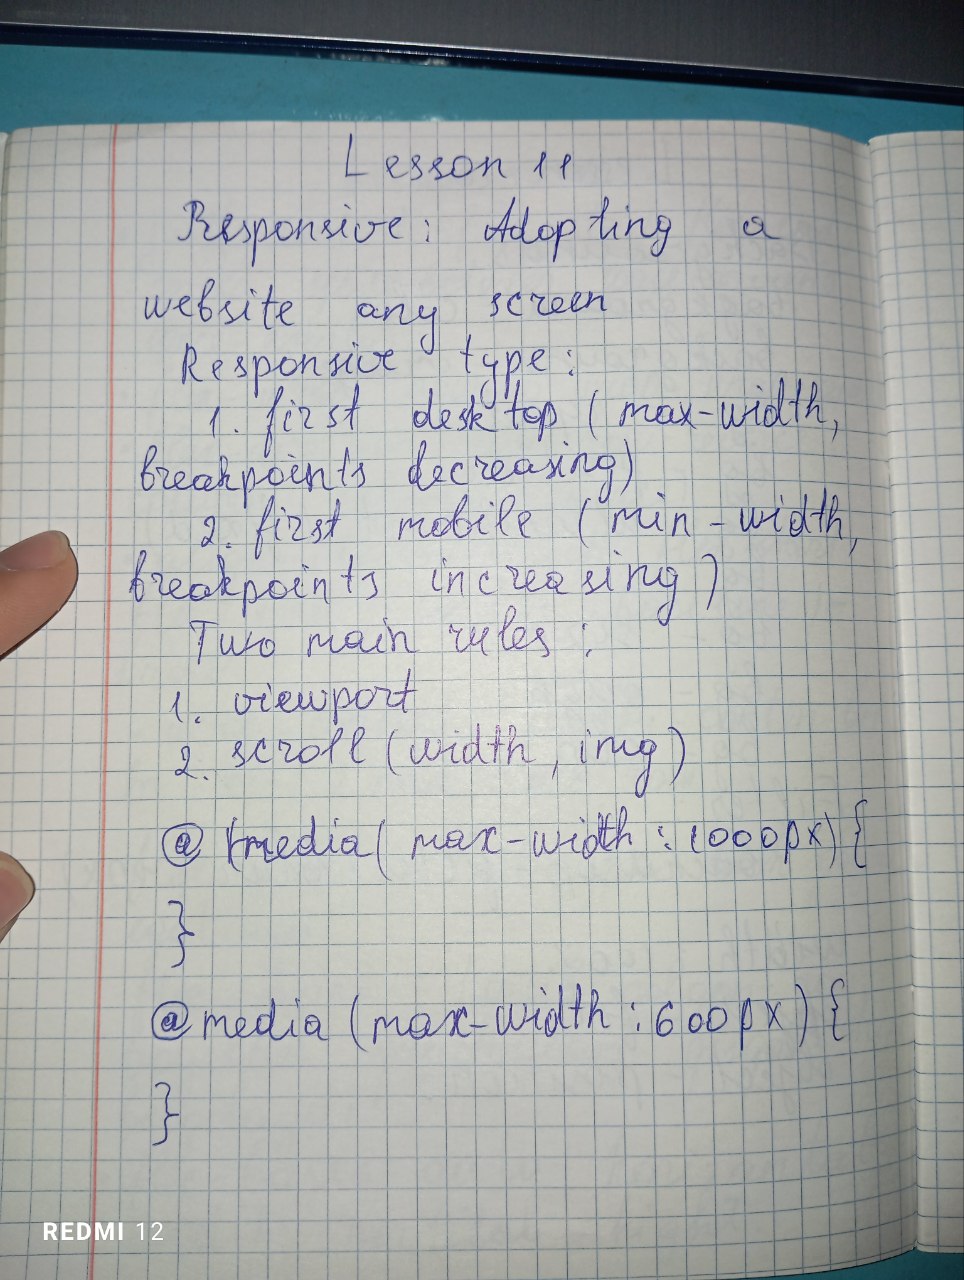 Lesson 11
Responsive: Adopting a
website any screen
Responsive type:
1. first desktop (max-width,
breakpoints decreasing)
2. first mobile (min-width,
breakpoints increasing)
Two main rules:
1. viewport
2. scroll (width, img)
@media (max-width: 1000px) {
}
@media (max-width: 600px) {
}
REDMI 12